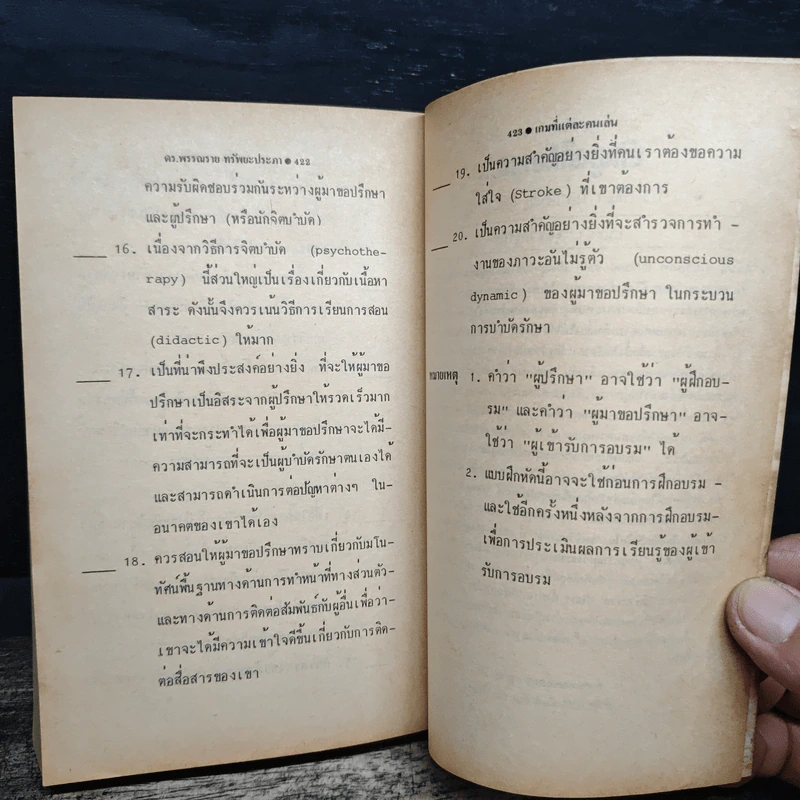 ดร.พรรณราย ทรัพยะประภา ● 422
ความรับผิดชอบร่วมกันระหว่างผู้มาขอปรึกษา
และผู้ปรึกษา (หรือนักจิตบำบัด)
____ 16. เนื่องจากวิธีการจิตบำบัด (psychothe-
rapy) นี้ส่วนใหญ่เป็นเรื่องเกี่ยวกับเนื้อหา
สาระ ดังนั้นจึงควรเน้นวิธีการเรียนการสอน
(didactic) ให้มาก
____ 17. เป็นที่น่าพึงประสงค์อย่างยิ่ง ที่จะให้ผู้มาขอ
ปรึกษาเป็นอิสระจากผู้ปรึกษาให้รวดเร็วมาก
เท่าที่จะกระทำได้เพื่อผู้มาขอปรึกษาจะได้มี-
ความสามารถที่จะเป็นผู้บำบัดรักษาตนเองได้
และสามารถดำเนินการต่อปัญหาต่างๆ ใน-
อนาคตของเขาได้เอง
____ 18. ควรสอนให้ผู้มาขอปรึกษาทราบเกี่ยวกับมโน-
ทัศน์พื้นฐานทางด้านการทำหน้าที่ทางส่วนตัว-
และทางด้านการติดต่อสัมพันธ์กับผู้อื่นเพื่อว่า-
เขาจะได้มีความเข้าใจดีขึ้นเกี่ยวกับการติด-
ต่อสื่อสารของเขา
423 ● เกมที่แต่ละคนเล่น
____ 19. เป็นความสำคัญอย่างยิ่งที่คนเราต้องขอความ
ใส่ใจ (Stroke) ที่เขาต้องการ
____ 20. เป็นความสำคัญอย่างยิ่งที่จะสำรวจการทำ -
งานของภาวะอันไม่รู้ตัว (unconscious
dynamic) ของผู้มาขอปรึกษา ในกระบวน
การบำบัดรักษา
หมายเหตุ 1. คำว่า "ผู้ปรึกษา" อาจใช้ว่า "ผู้ฝึกอบ-
รม" และคำว่า "ผู้มาขอปรึกษา" อาจ-
ใช้ว่า "ผู้เข้ารับการอบรม" ได้
2. แบบฝึกหัดนี้อาจจะใช้ก่อนการฝึกอบรม -
และใช้อีกครั้งหนึ่งหลังจากการฝึกอบรม-
เพื่อการประเมินผลการเรียนรู้ของผู้เข้า
รับการอบรม